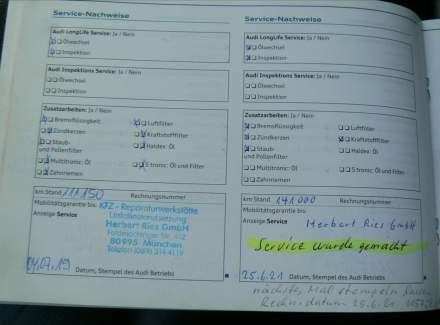 Service-Nachweise
Audi LongLife Service: Ja / Nein
Ölwechsel
Inspektion
Audi Inspektions Service: Ja / Nein
Ölwechsel
Inspektion
Zusatzarbeiten: Ja / Nein
Bremsflüssigkeit
Luftfilter
Zündkerzen
Kraftstofffilter
Staub-
und Pollenfilter
Haldex: Öl
Multitronic: Öl
S tronic: Öl und Filter
Zahnriemen
km Stand 111.150
Rechnungsnummer
Mobilitätsgarantie bis:
Anzeige Service
KFZ - Reparaturwerkstätte
Unfallinstandsetzung
Herbert Ries GmbH
80995 München
Datum, Stempel des Audi Betriebs
Service-Nachweise
Audi LongLife Service: Ja / Nein
Ölwechsel
Inspektion
Audi Inspektions Service: Ja / Nein
Ölwechsel
Inspektion
Zusatzarbeiten: Ja / Nein
Bremsflüssigkeit
Luftfilter
Zündkerzen
Kraftstofffilter
Staub-
und Pollenfilter
Haldex: Öl
Multitronic: Öl
S tronic: Öl und Filter
Zahnriemen
km Stand 141.000
Rechnungsnummer
Mobilitätsgarantie bis:
Anzeige Service
Herbert Ries GmbH
Service wurde gemacht
25.6.21
Datum, Stempel des Audi Betriebs
nächstes Mal stempeln lassen
Rechn.datum 25.6.21